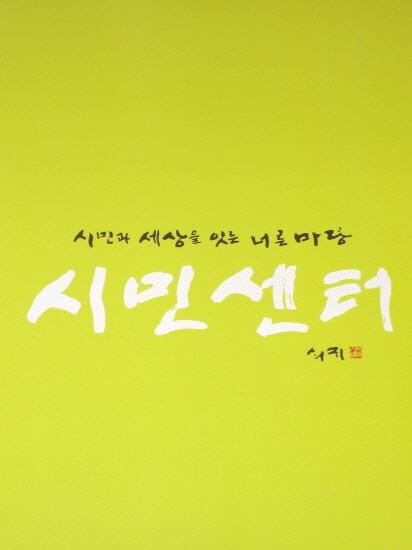 시민과 세상을 잇는 너른 마당
시민센터
쇠귀